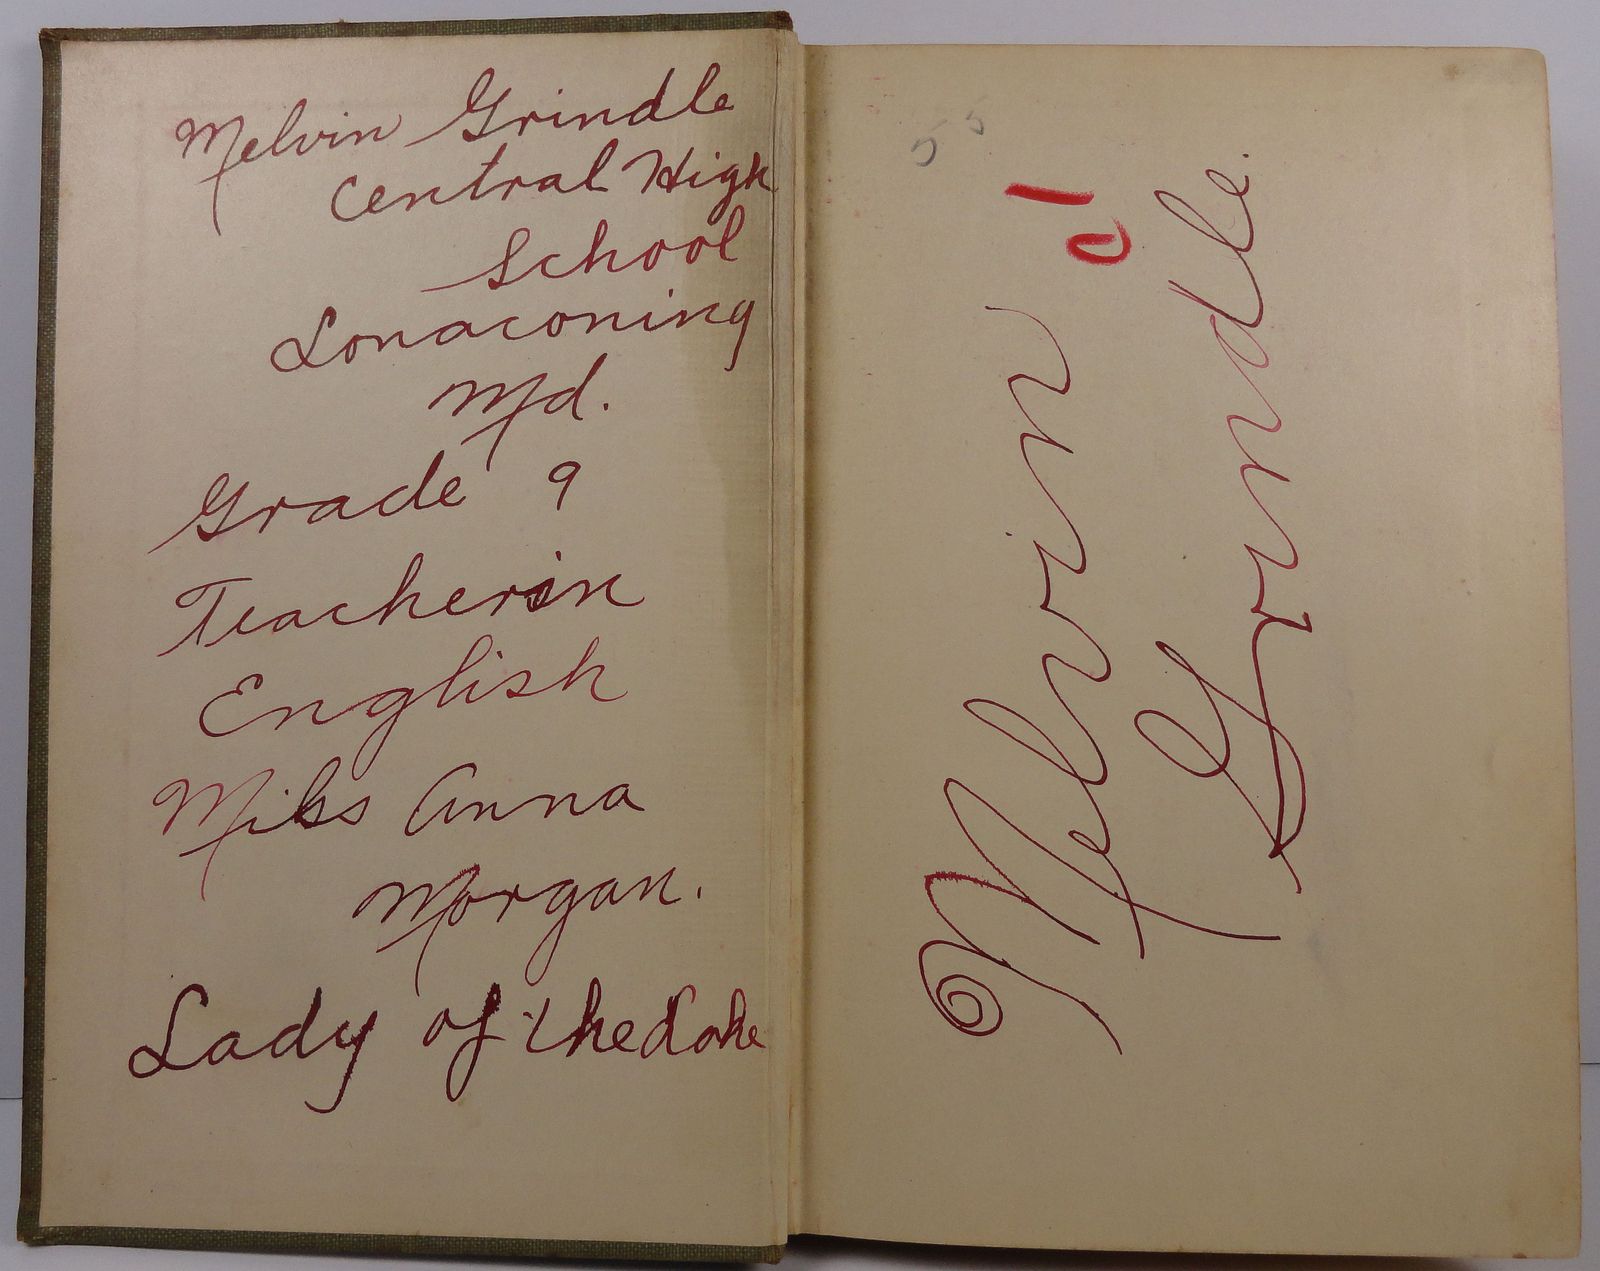 Melvin Grindle
Central High
School
Lonaconing
Md.
Grade 9
Teacher in
English
Miss Anna
Morgan.
Lady of the Lake
55
Melvin
Grindle.